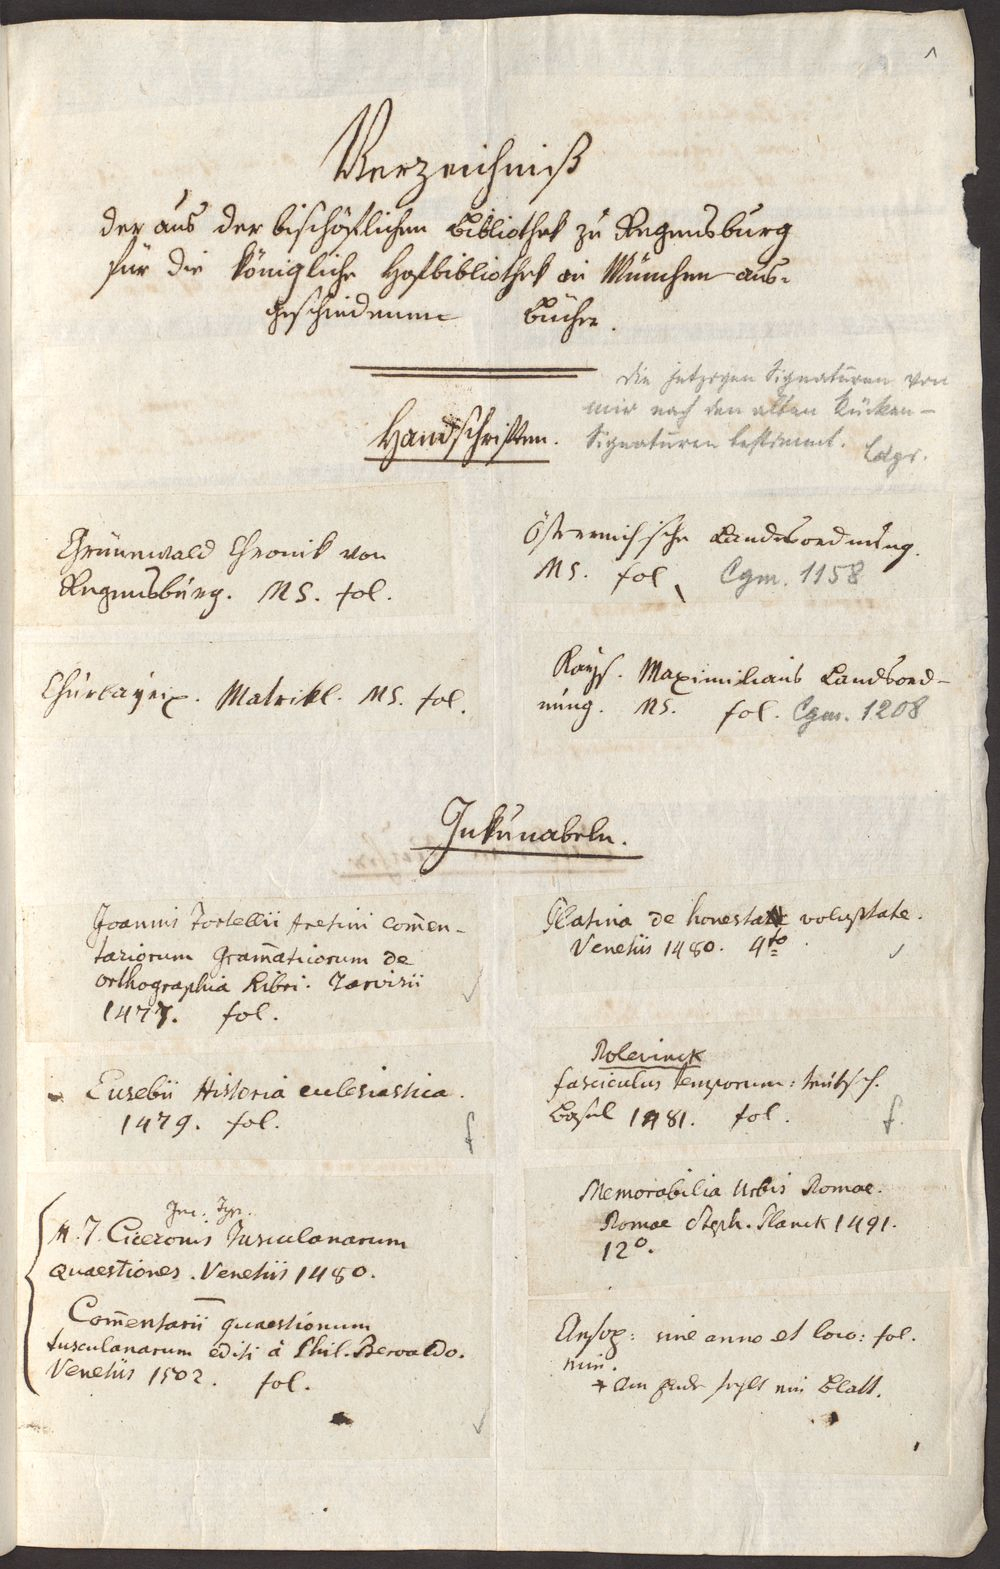 1
Verzeichniß
der aus der bischöflichen Bibliothek zu Regensburg
für die königliche Hofbibliothek in München aus-
geschiedenen Bücher.
Die jetzigen Signaturen von
mir nach den alten Rücken-
Signaturen bestimmt.
Handschriften.
Grünewald Chronik von
Regensburg. MS. fol.
Churbayrix. Matrikl. MS. fol.
Österreichische Landesordnung.
MS. fol. Cgm. 1158
Kays. Maximilians Landsord-
nung. MS. fol. Cgm. 1208
Inkunabeln.
Joannis Tortellii Aretini com̄en-
tariorum Gram̄aticorum de
orthographia Libri. Tarvisii
1477. fol.
Eusebii Historia ecclesiastica.
1479. fol.
f
Inc. Typ.
M. T. Ciceronis Tusculanarum
Quaestiones. Venetiis 1480.
Com̄entarii quaestionum
tusculanarum editi à Phil. Beroaldo.
Venetiis 1502. fol.
Platina de honesta voluptate.
Venetiis 1480. 4to
Rolevinck
fasciculus temporum: teutsch.
Basel 1481. fol.
f.
Memorabilia Urbis Romae.
Romae Steph. Planck 1491.
12°.
Aesop: sine anno et loco: fol.
min.
+ Am Ende fehlt ein Blatt.